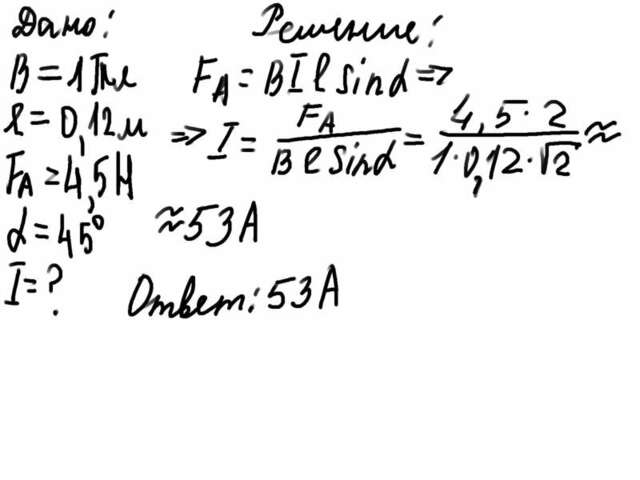 Дано:
B = 1Тл
l = 0,12м
FA = 4,5Н
α = 45°
I = ?
Решение:
FA = BIl sinα =>
=> I = FA / Bl sinα = 4,5·2 / 1·0,12·√2 ≈
≈ 53А
Ответ: 53А